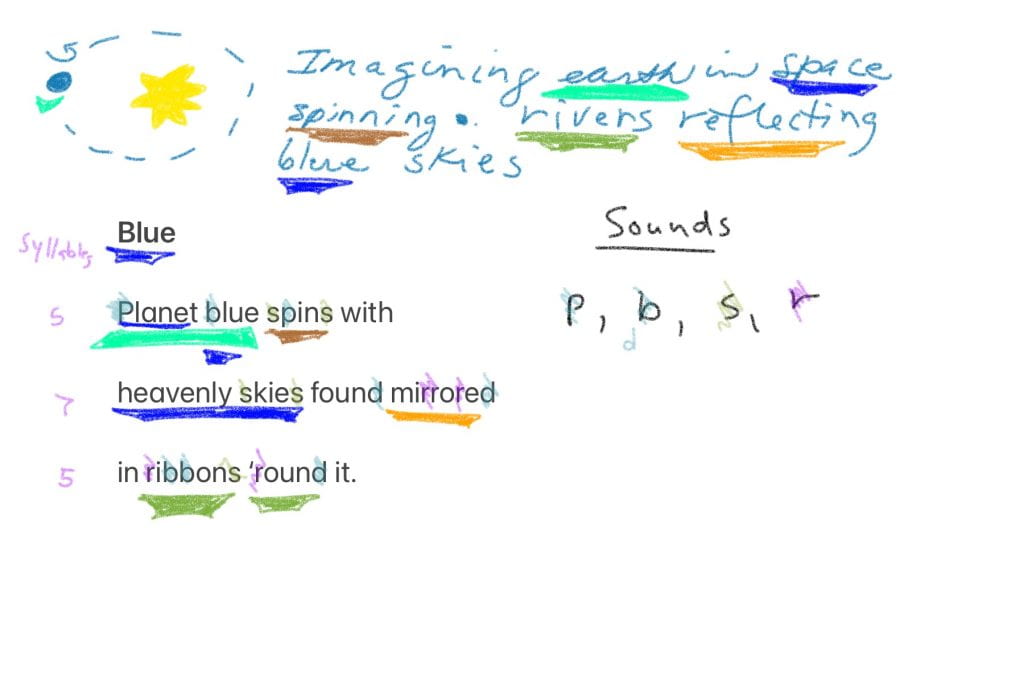 Imagining earth in space
spinning. rivers reflecting
blue skies
Syllables
Blue
Sounds
5 Planet blue spins with
p, b, s, r
d
7 heavenly skies found mirrored
5 in ribbons 'round it.